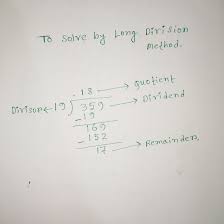 To Solve by Long Division
Method.
18 → Quotient
Divisor ← 19 ) 359 → Dividend
-19
169
-152
17 → Remainder